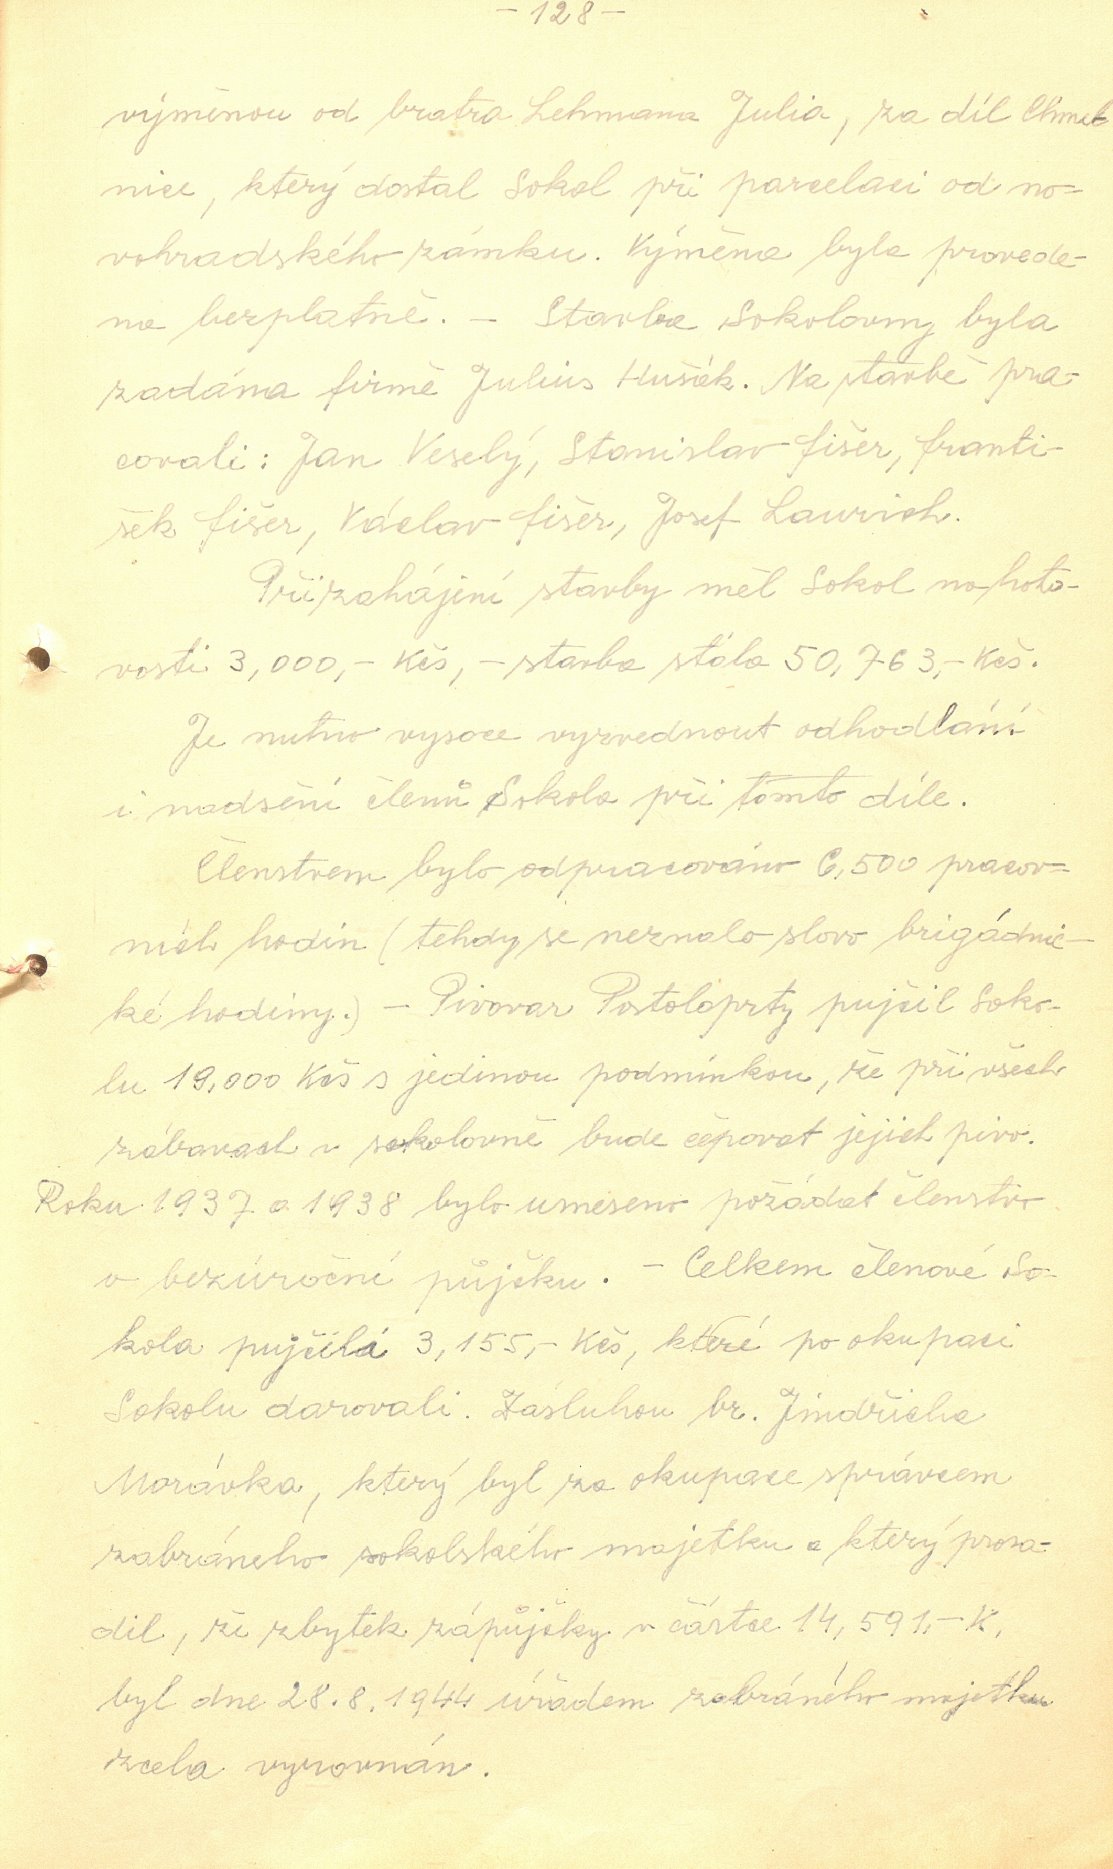 - 128 -
výměnou od bratra Lehmana Julia, za díl Chmel
nice, který dostal Sokol při parcelaci od no=
vohradského zámku. Výměna byla provede-
na bezplatně. - Stavba Sokolovny byla
zadána firmě Julius Hušák. Na stavbě pra-
covali: Jan Veselý, Stanislav Fišer, Franti-
šek Fišer, Václav Fišer, Josef Laurich.
Při zahájení stavby měl Sokol na hoto-
vosti 3,000,- Kčs, - stavba stála 50,763,- Kčs.
Je nutno vysoce vyzvednout odhodlání
i nadšení členů Sokola při tomto díle.
Členstvem bylo odpracováno 6,500 pracov=
ních hodin (tehdy se neznalo slovo brigádnic-
ké hodiny.) - Pivovar Postoloprty pujčil Soko-
lu 19,000 Kčs s jedinou podmínkou, že při všech
zábavach v sokolovně bude čepovat jejich pivo.
Roku 1937 a 1938 bylo usneseno požádat členstvo
o bezúroční půjčku. - Celkem členové So-
kola pujčili 3,155,- Kčs, které po okupaci
Sokolu darovali. Zásluhou br. Jindřicha
Morávka, který byl za okupace správcem
zabráneho sokolského majetku a který prosa-
dil, že zbytek zápůjčky v částce 14,591,- K,
byl dne 28.8.1944 úřadem zabráného majetku
zcela vyrovnán.